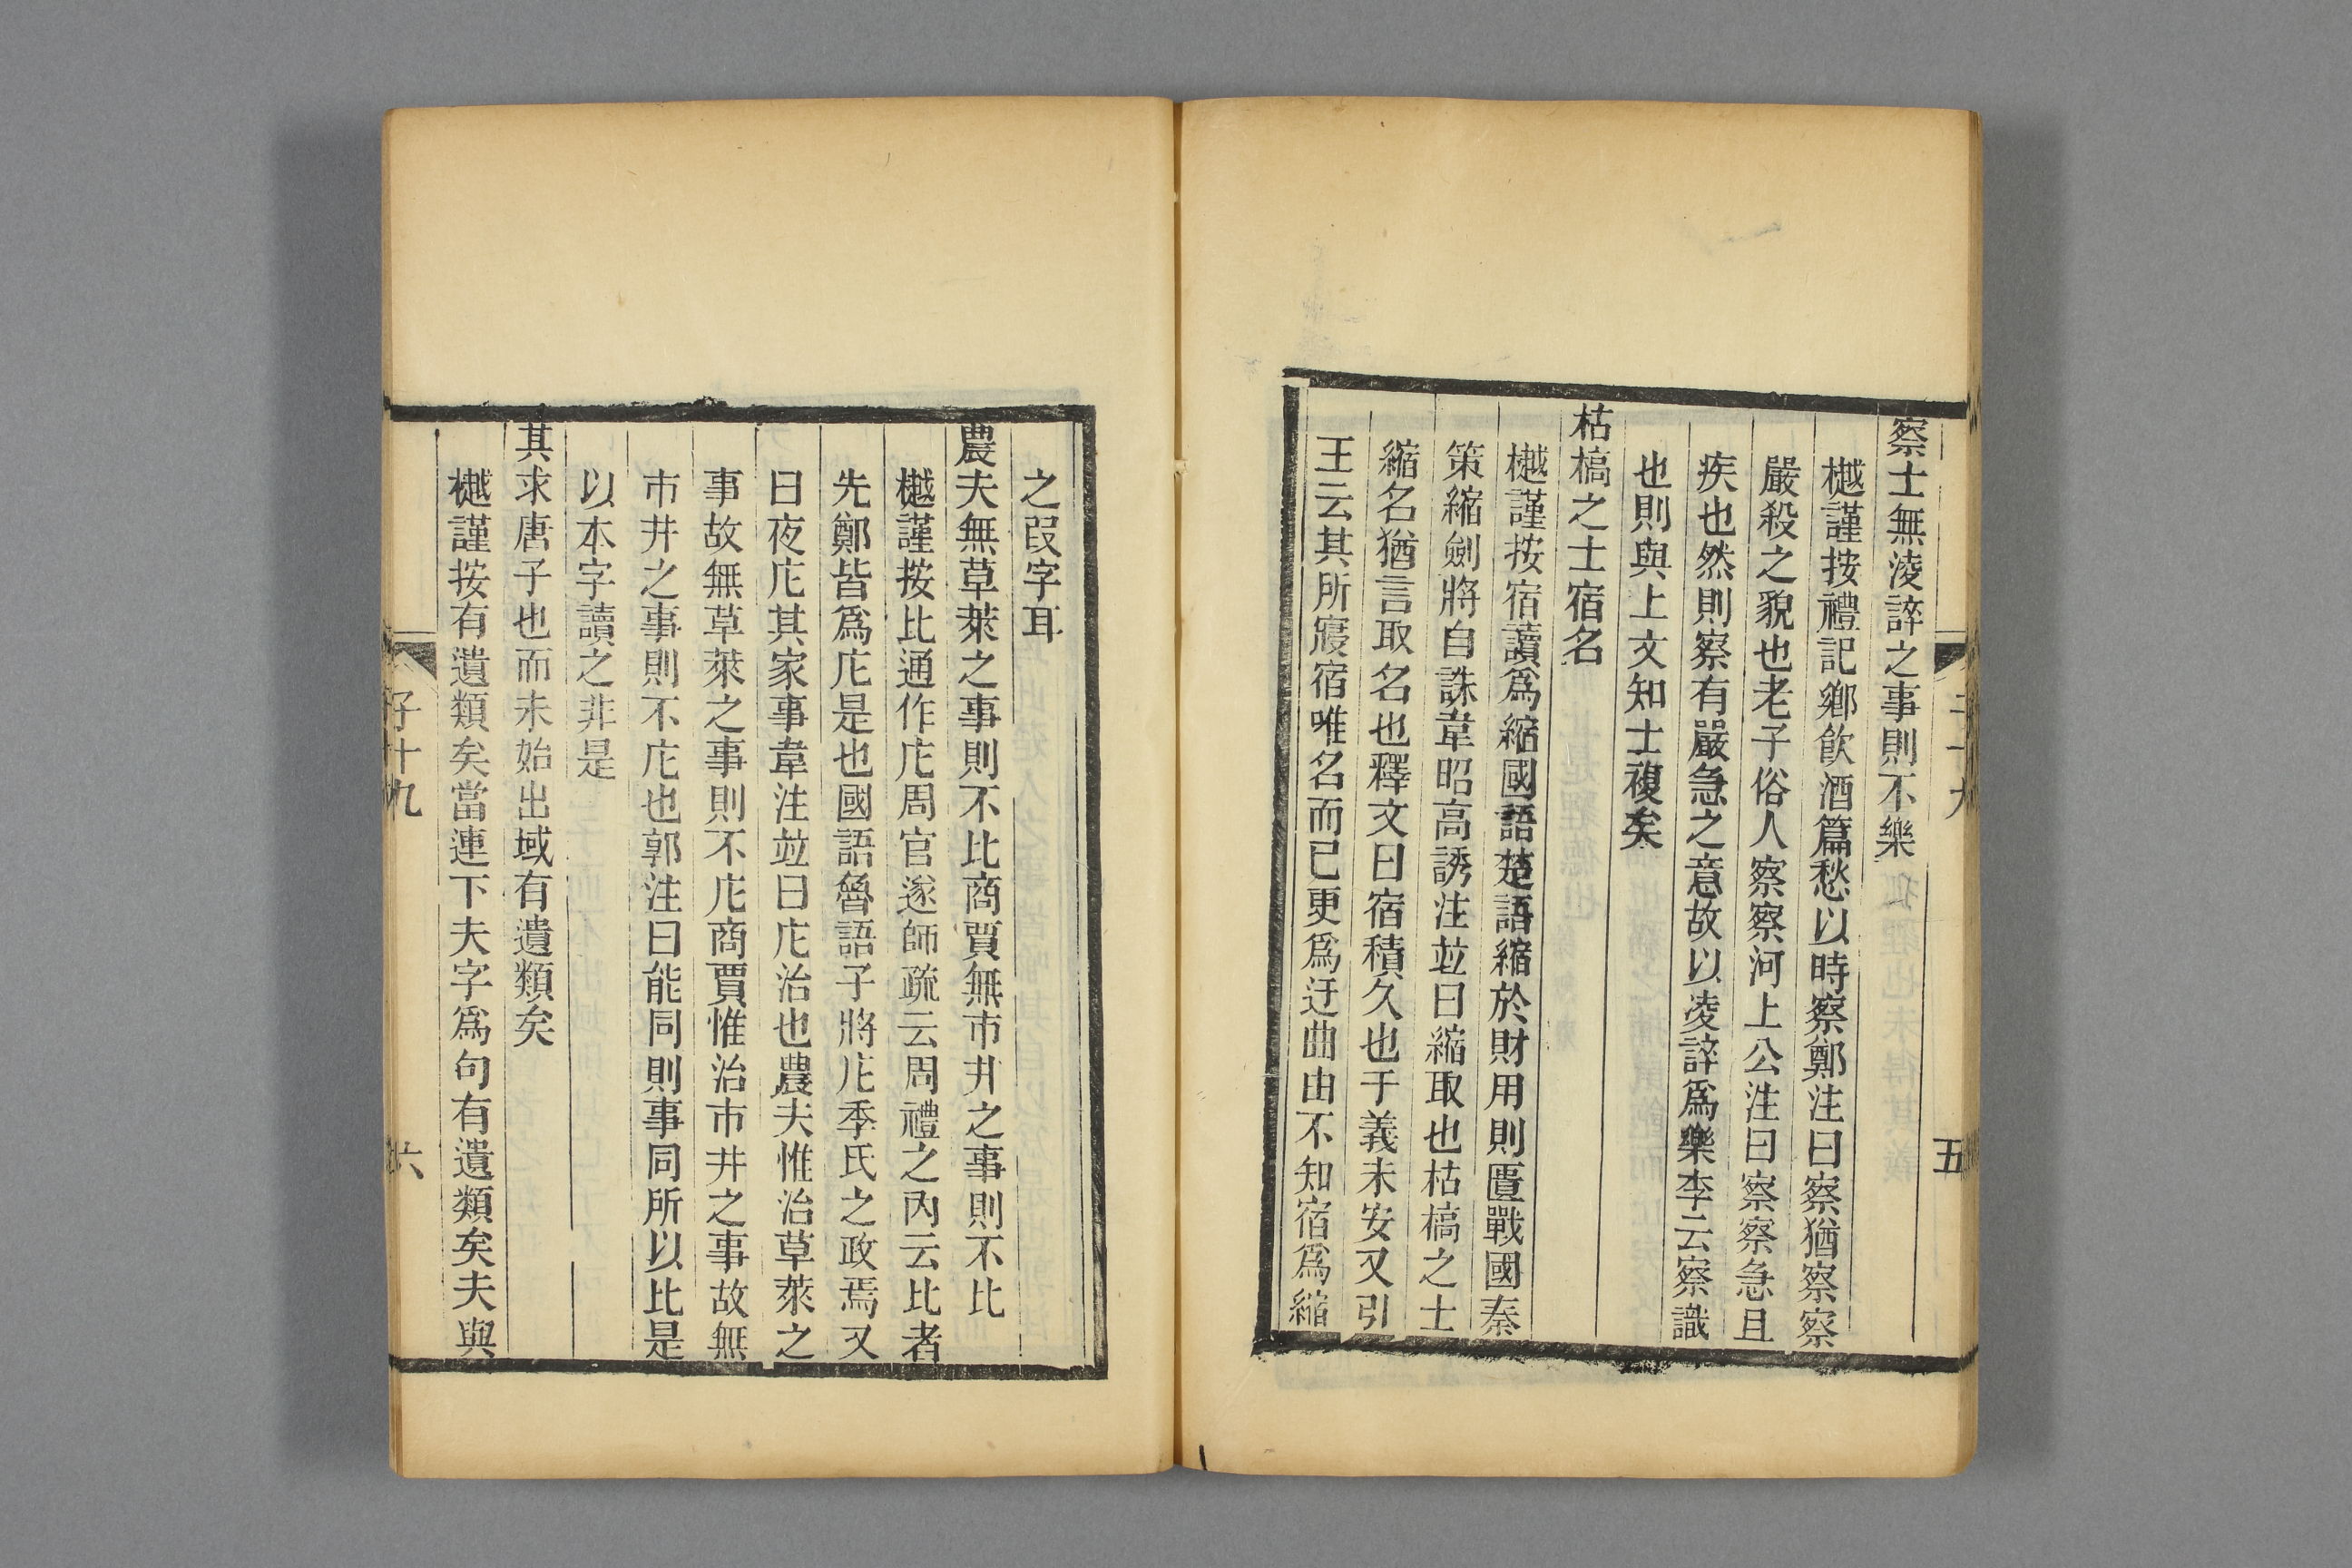 察士無淩誶之事則不樂
樾謹按禮記鄉飲酒篇愁以時察鄭注曰察猶察察
嚴殺之貌也老子俗人察察河上公注曰察察急且
疾也然則察有嚴急之意故以凌誶爲樂李云察識
也則與上文知士複矣
枯槁之士宿名
樾謹按宿讀爲縮國語楚語縮於財用則匱戰國秦
策縮劍將自誅韋昭高誘注竝曰縮取也枯槁之士
縮名猶言取名也釋文曰宿積久也于義未安又引
王云其所寢宿唯名而已更爲迂曲由不知宿爲縮
五
之叚字耳
農夫無草萊之事則不比商賈無市井之事則不比
樾謹按比通作庀周官遂師疏云周禮之內云比者
先鄭皆爲庀是也國語魯語子將庀季氏之政焉又
日夜庀其家事韋注竝曰庀治也農夫惟治草萊之
事故無草萊之事則不庀商賈惟治市井之事故無
市井之事則不庀也郭注曰能同則事同所以比是
以本字讀之非是
其求唐子也而未始出域有遺類矣
樾謹按有遺類矣當連下夫字爲句有遺類矣夫與
子十九
六